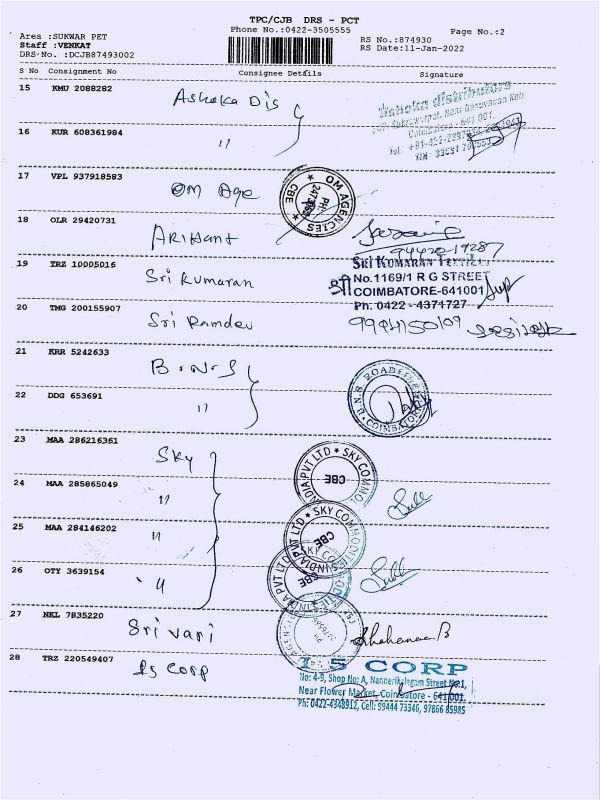 TPC/CJB DRS - PCT
Phone No.:0422-3505555 Page No.:2
Area :SUKWAR PET RS No.:874930
Staff :VENKAT RS Date:11-Jan-2022
DRS-No. :DCJB87493002
S No Consignment No Consignee Details Signature
15 KMU 2088282 Ashoka Dis
16 KUR 608361984 "
Coimbatore - 641 001.
17 VPL 937918583 OM Age
OM AGENCIES ★ CBE ★
18 OLR 29420731 ARIHANT
19 TRZ 10005016 Sri Kumaran
SRI KUMARAN TEXTILES
श्री No.1169/1 R G STREET
COIMBATORE-641001
Ph: 0422 - 4371727
20 TMG 200155907 Sri Ramdev
21 KRR 5242633 B.N.S
22 DDG 653691 "
23 MAA 286216361 Sky
INDIA PVT LTD ★ SKY COMMO
CBE
24 MAA 285865049 "
25 MAA 284146202 "
INDIA PVT LTD ★ SKY COMMODITIES
CBE
26 OTY 3639154 "
CBE
27 NKL 7835220 Sri Vari
28 TRZ 220549407 I5 Corp
I 5 CORP
No: 4-9, Shop No: A, Nannerikalagam Street No.1,
Near Flower Market, Coimbatore - 641001.
Ph: 0422-4348912, Cell: 99444 73346, 97866 85985